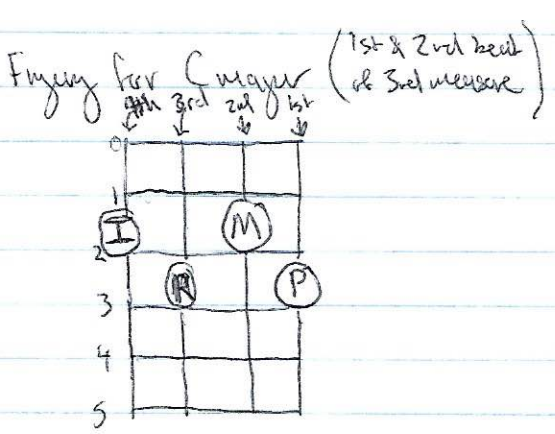 Fingering for C major (1st & 2nd beat
of 3rd measure)
4th 3rd 2nd 1st
0
1
I M
2
R P
3
4
5